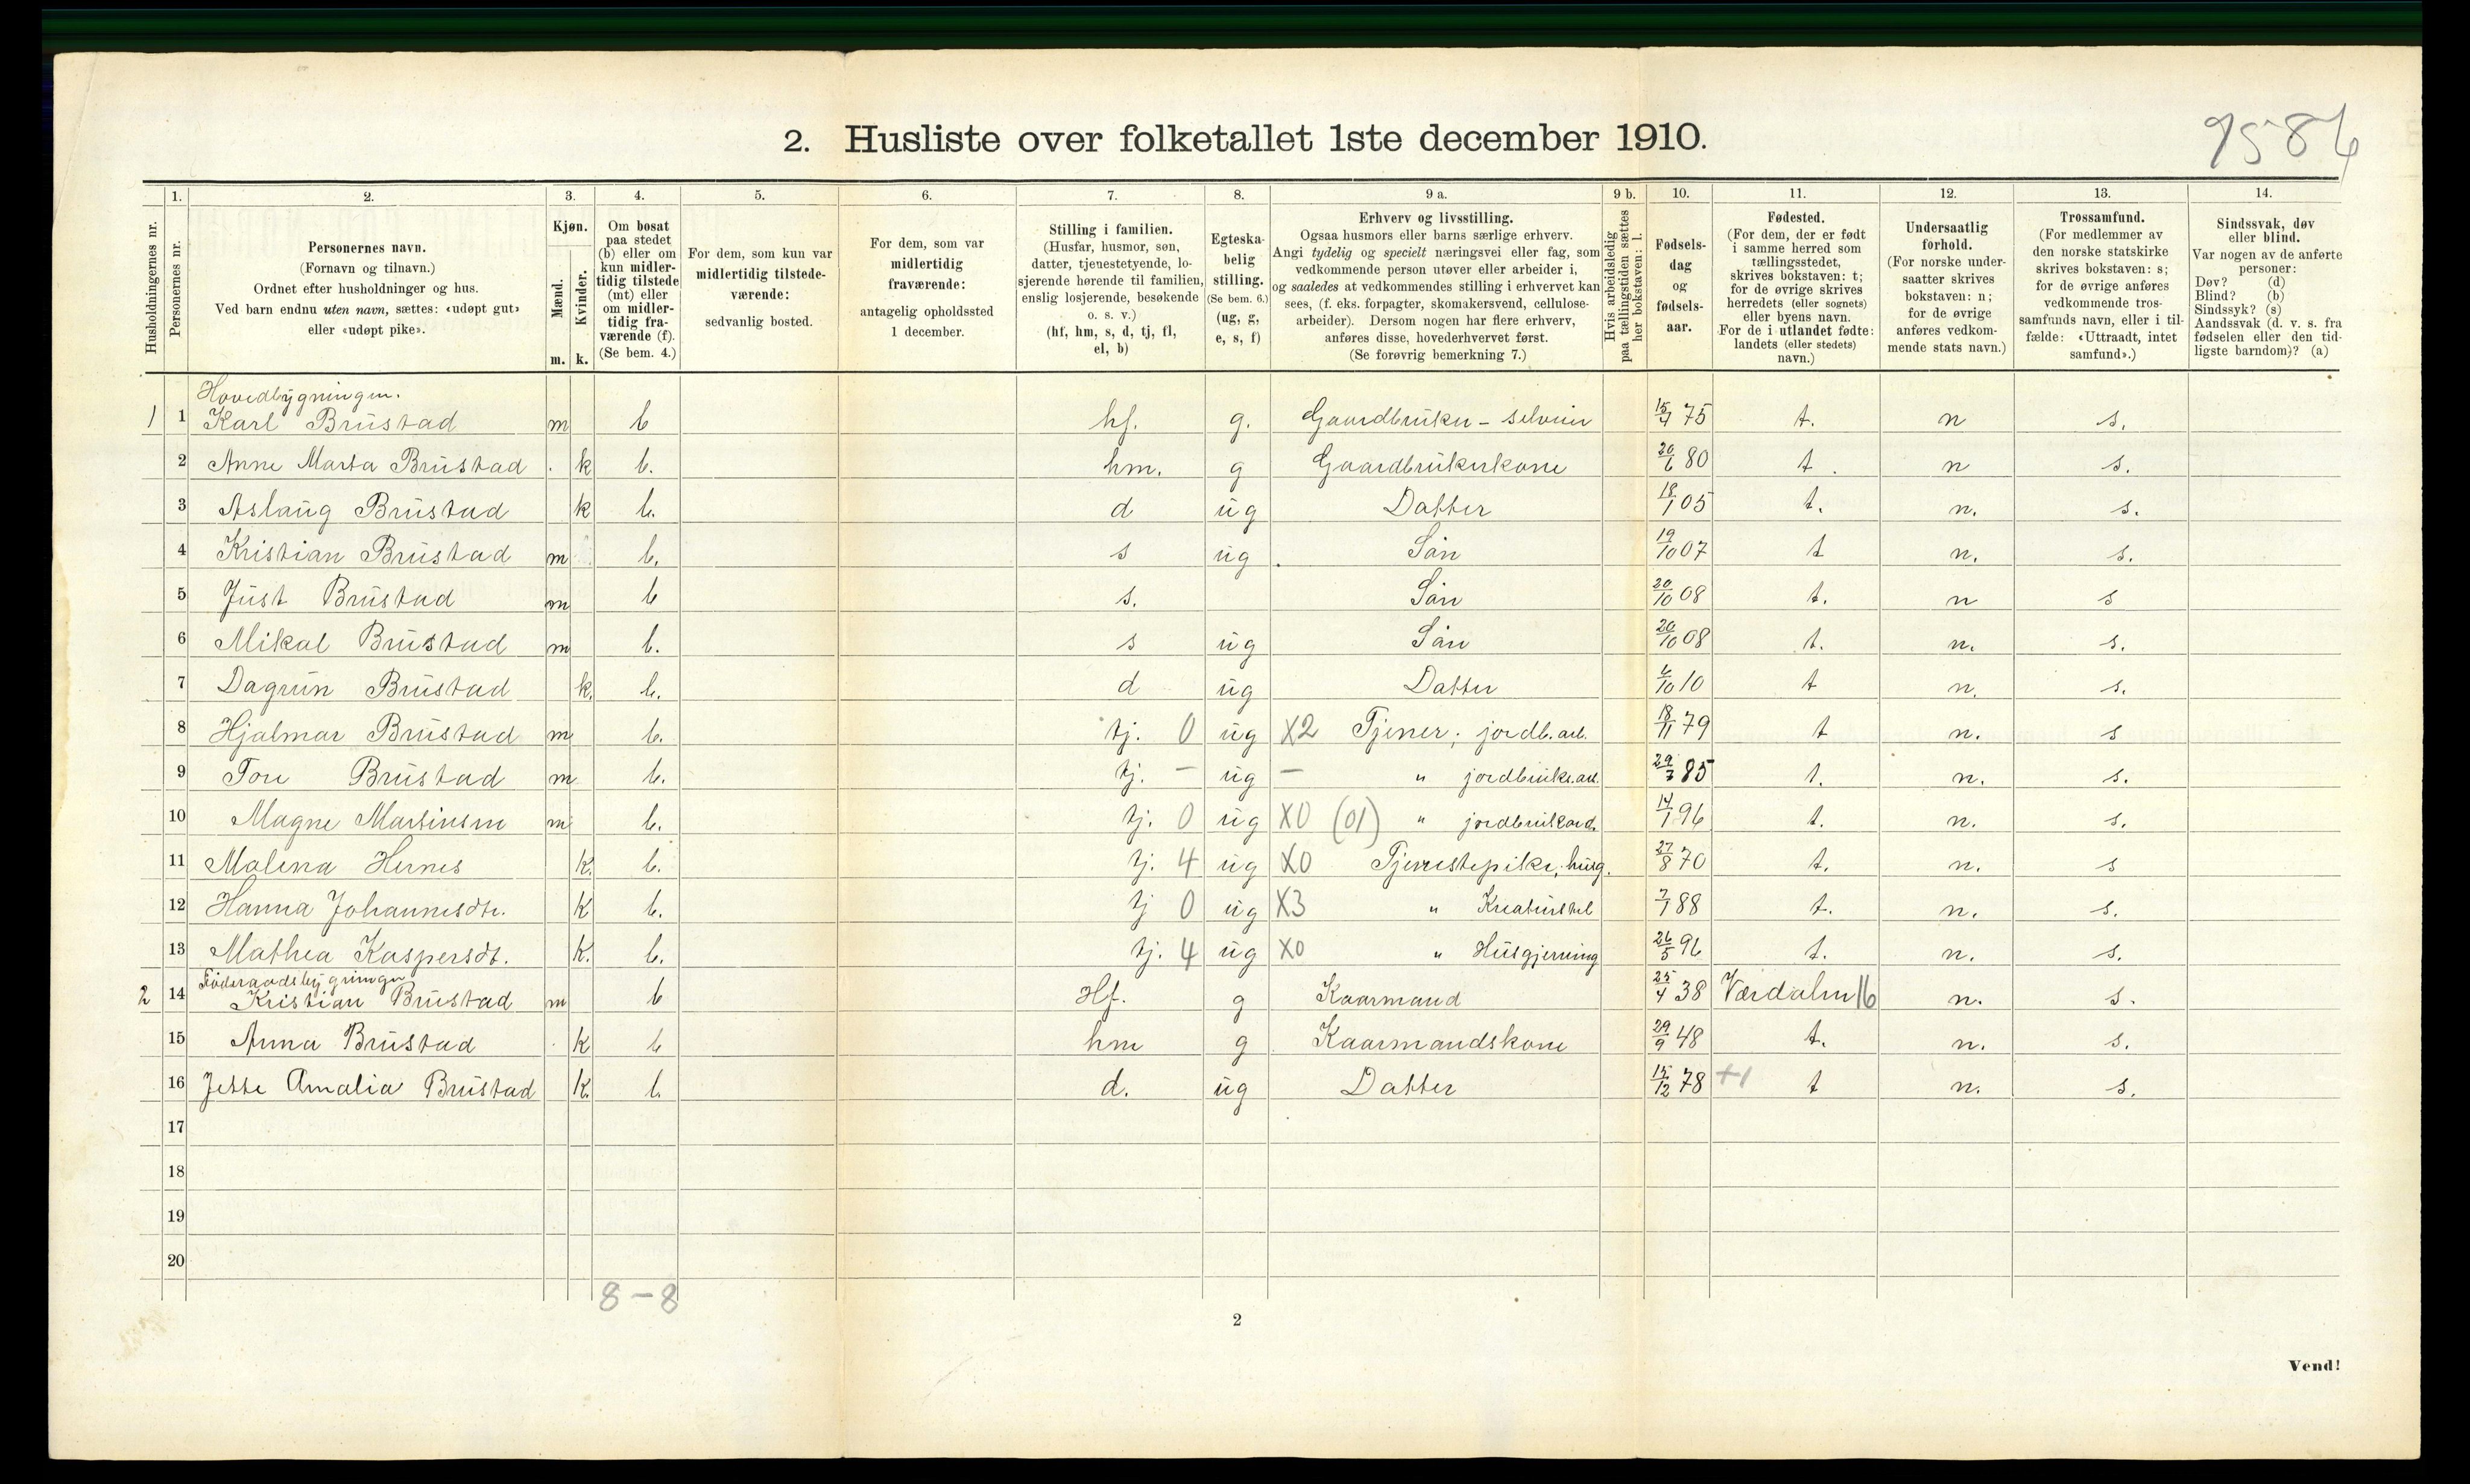 2. Husliste over folketallet 1ste december 1910.
9586
1. 2. 3. 4. 5. 6. 7. 8. 9 a. 9 b. 10. 11. 12. 13. 14.
Husholdningernes nr.
Personernes nr.
Personernes navn.
(Fornavn og tilnavn.)
Ordnet efter husholdninger og hus.
Ved barn endnu uten navn, sættes: «udøpt gut»
eller «udøpt pike».
Kjøn.
Mænd.
Kvinder.
m. k.
Om bosat
paa stedet
(b) eller om
kun midler-
tidig tilstede
(mt) eller
om midler-
tidig fra-
værende (f).
(Se bem. 4.)
For dem, som kun var
midlertidig tilstede-
værende:
sedvanlig bosted.
For dem, som var
midlertidig
fraværende:
antagelig opholdssted
1 december.
Stilling i familien.
(Husfar, husmor, søn,
datter, tjenestetyende, lo-
sjerende hørende til familien,
enslig losjerende, besøkende
o. s. v.)
(hf, hm, s, d, tj, fl,
el, b)
Egteska-
belig
stilling.
(Se bem. 6.)
(ug, g,
e, s, f)
Erhverv og livsstilling.
Ogsaa husmors eller barns særlige erhverv.
Angi tydelig og specielt næringsvei eller fag, som
vedkommende person utøver eller arbeider i,
og saaledes at vedkommendes stilling i erhvervet kan
sees, (f. eks. forpagter, skomakersvend, cellulose-
arbeider). Dersom nogen har flere erhverv,
anføres disse, hovederhvervet først.
(Se forøvrig bemerkning 7.)
Hvis arbeidsledig
paa tællingstiden sættes
her bokstaven: l.
Fødsels-
dag
og
fødsels-
aar.
Fødested.
(For dem, der er født
i samme herred som
tællingsstedet,
skrives bokstaven: t;
for de øvrige skrives
herredets (eller sognets)
eller byens navn.
For de i utlandet fødte:
landets (eller stedets)
navn.)
Undersaatlig
forhold.
(For norske under-
saatter skrives
bokstaven: n;
for de øvrige
anføres vedkom-
mende stats navn.)
Trossamfund.
(For medlemmer av
den norske statskirke
skrives bokstaven: s;
for de øvrige anføres
vedkommende tros-
samfunds navn, eller i til-
fælde: «Uttraadt, intet
samfund».)
Sindssvak, døv
eller blind.
Var nogen av de anførte
personer:
Døv? (d)
Blind? (b)
Sindssyk? (s)
Aandssvak (d. v. s. fra
fødselen eller den tid-
ligste barndom)? (a)
Hovedbygningen.
1 1 Karl Brustad m b hf. g. Gaardbruker - selveier 15/4 75 t. n s.
2 Anne Marta Brustad k b. hm. g Gaardbrukerkone 20/6 80 t. n s.
3 Aslaug Brustad k b. d ug Datter 18/1 05 t. n. s.
4 Kristian Brustad m b. s ug Sön 19/10 07 t n. s.
5 Just Brustad m b s. Sön 20/10 08 t. n s
6 Mikal Brustad m b. s ug Sön 20/10 08 t. n. s.
7 Dagrun Brustad k. b. d ug Datter 6/10 10 t n. s.
8 Hjalmar Brustad m b. tj. 0 ug X2 Tjener; jordb. arb. 18/11 79 t n. s
9 Tore Brustad m b. tj. - ug - " jordbruks.arb. 29/7 85 t. n. s.
10 Magne Martinsen m b. tj. 0 ug X0 (01) " jordbruksarb. 14/1 96 t. n. s.
11 Malena Hernes k. b. tj. 4 ug X0 Tjenestepike, husg. 27/8 70 t. n. s
12 Hanna Johannesdtr. k b. tj 0 ug X3 " Kreaturstel 7/1 88 t. n. s.
13 Mathea Kaspersdt. k. b. tj. 4 ug X0 " Husgjerning 26/5 96 t. n. s.
Föderaadsbygningen
2 14 Kristian Brustad m b Hf. g Kaarmand 25/4 38 Værdalen 16 n. s.
15 Anna Brustad k b hm g Kaarmandskone 29/9 48 t. n. s.
16 Jette Amalia Brustad k. b. d. ug Datter 15/12 78 +1 t n. s.
17
18
19
20
8 - 8
2
Vend!